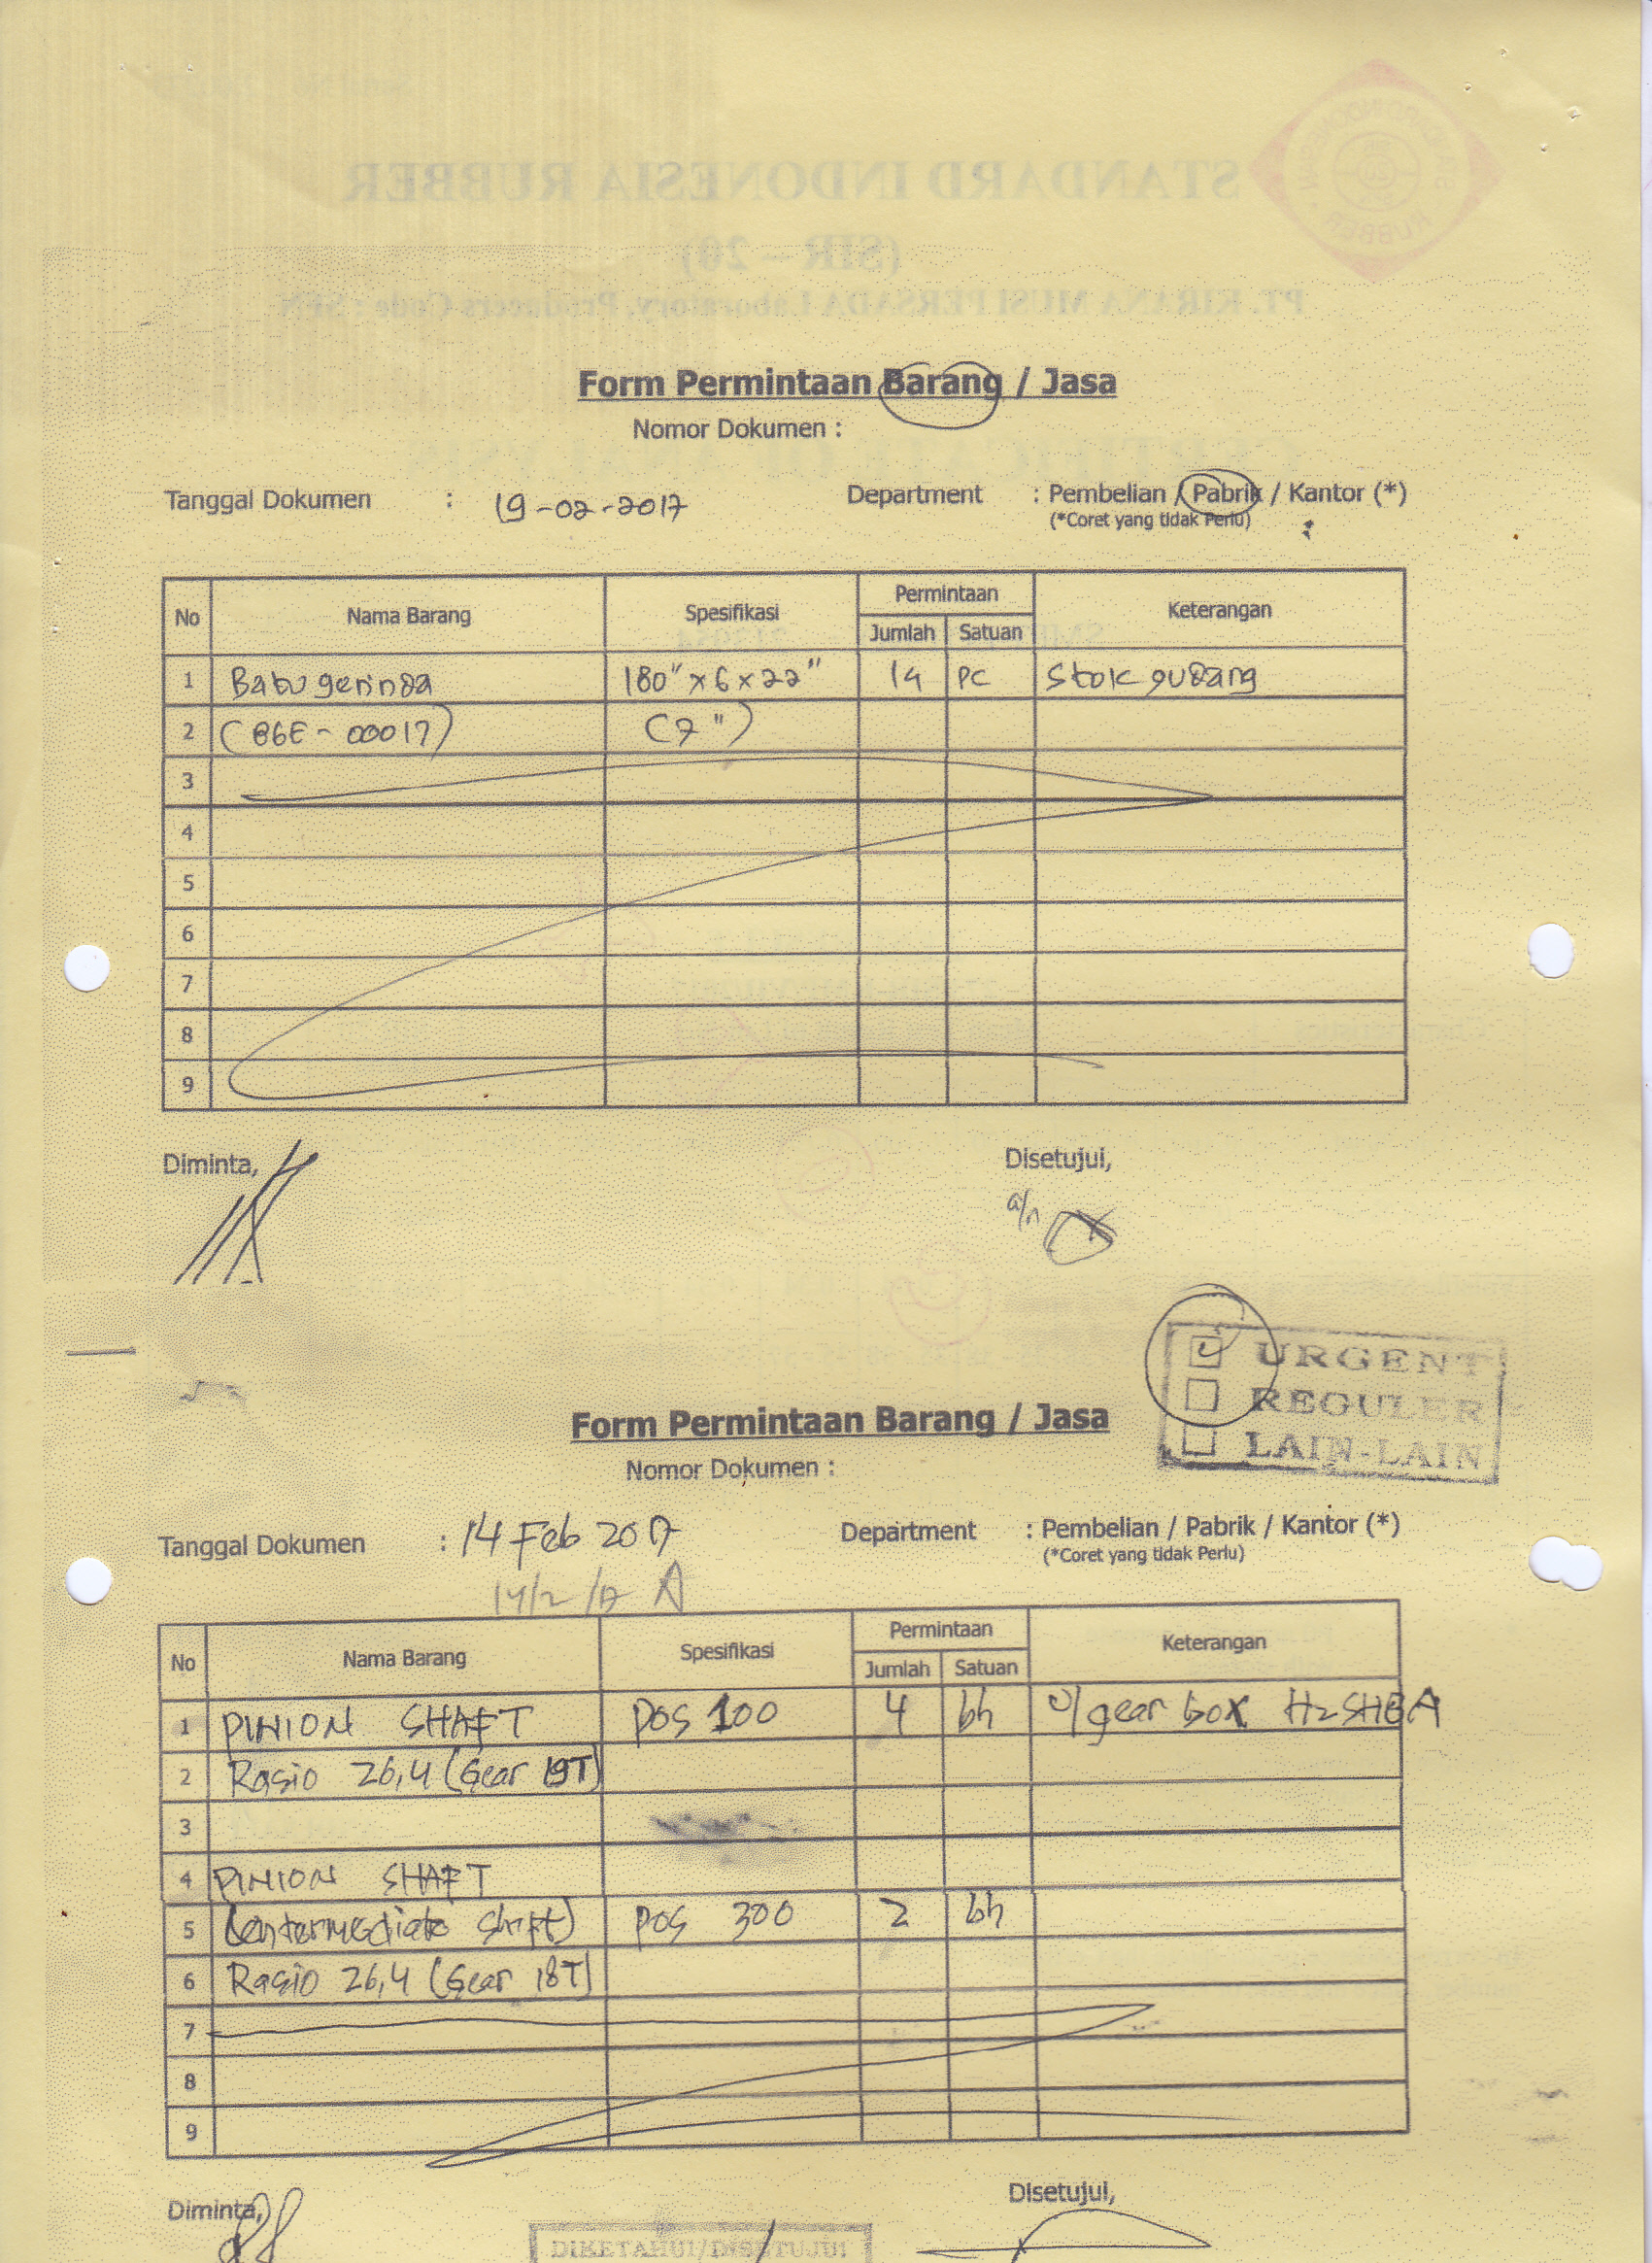 STANDARD INDONESIA RUBBER
(SIR - 20)
PT. KIRANA MUSI PERSADA Laboratory, Producers Code : SFN
Form Permintaan Barang / Jasa
Nomor Dokumen :
Tanggal Dokumen : 19-02-2017 Department : Pembelian / Pabrik / Kantor (*)
(*Coret yang tidak Perlu)
No Nama Barang Spesifikasi Permintaan Keterangan
Jumlah Satuan
1 Batu gerinda 180" x 6 x 22" 14 pc Stok gudang
2 (7")
3
4
5
6
7
8
9
Diminta, Disetujui,
a/n
URGENT
REGULER
LAIN-LAIN
Form Permintaan Barang / Jasa
Nomor Dokumen :
Tanggal Dokumen : 14 Feb 2017 Department : Pembelian / Pabrik / Kantor (*)
(*Coret yang tidak Perlu)
14/2/17
No Nama Barang Spesifikasi Permintaan Keterangan
Jumlah Satuan
1 PINION SHAFT POS 100 4 bh u/ gear box
2 Rasio 26,4 (Gear 19T)
3
4 PINION SHAFT
5 shaft) POS 300 2 bh
6 Rasio 26,4 (Gear 18T)
7
8
9
Diminta, Disetujui,
DIKETAHUI/DISETUJUI